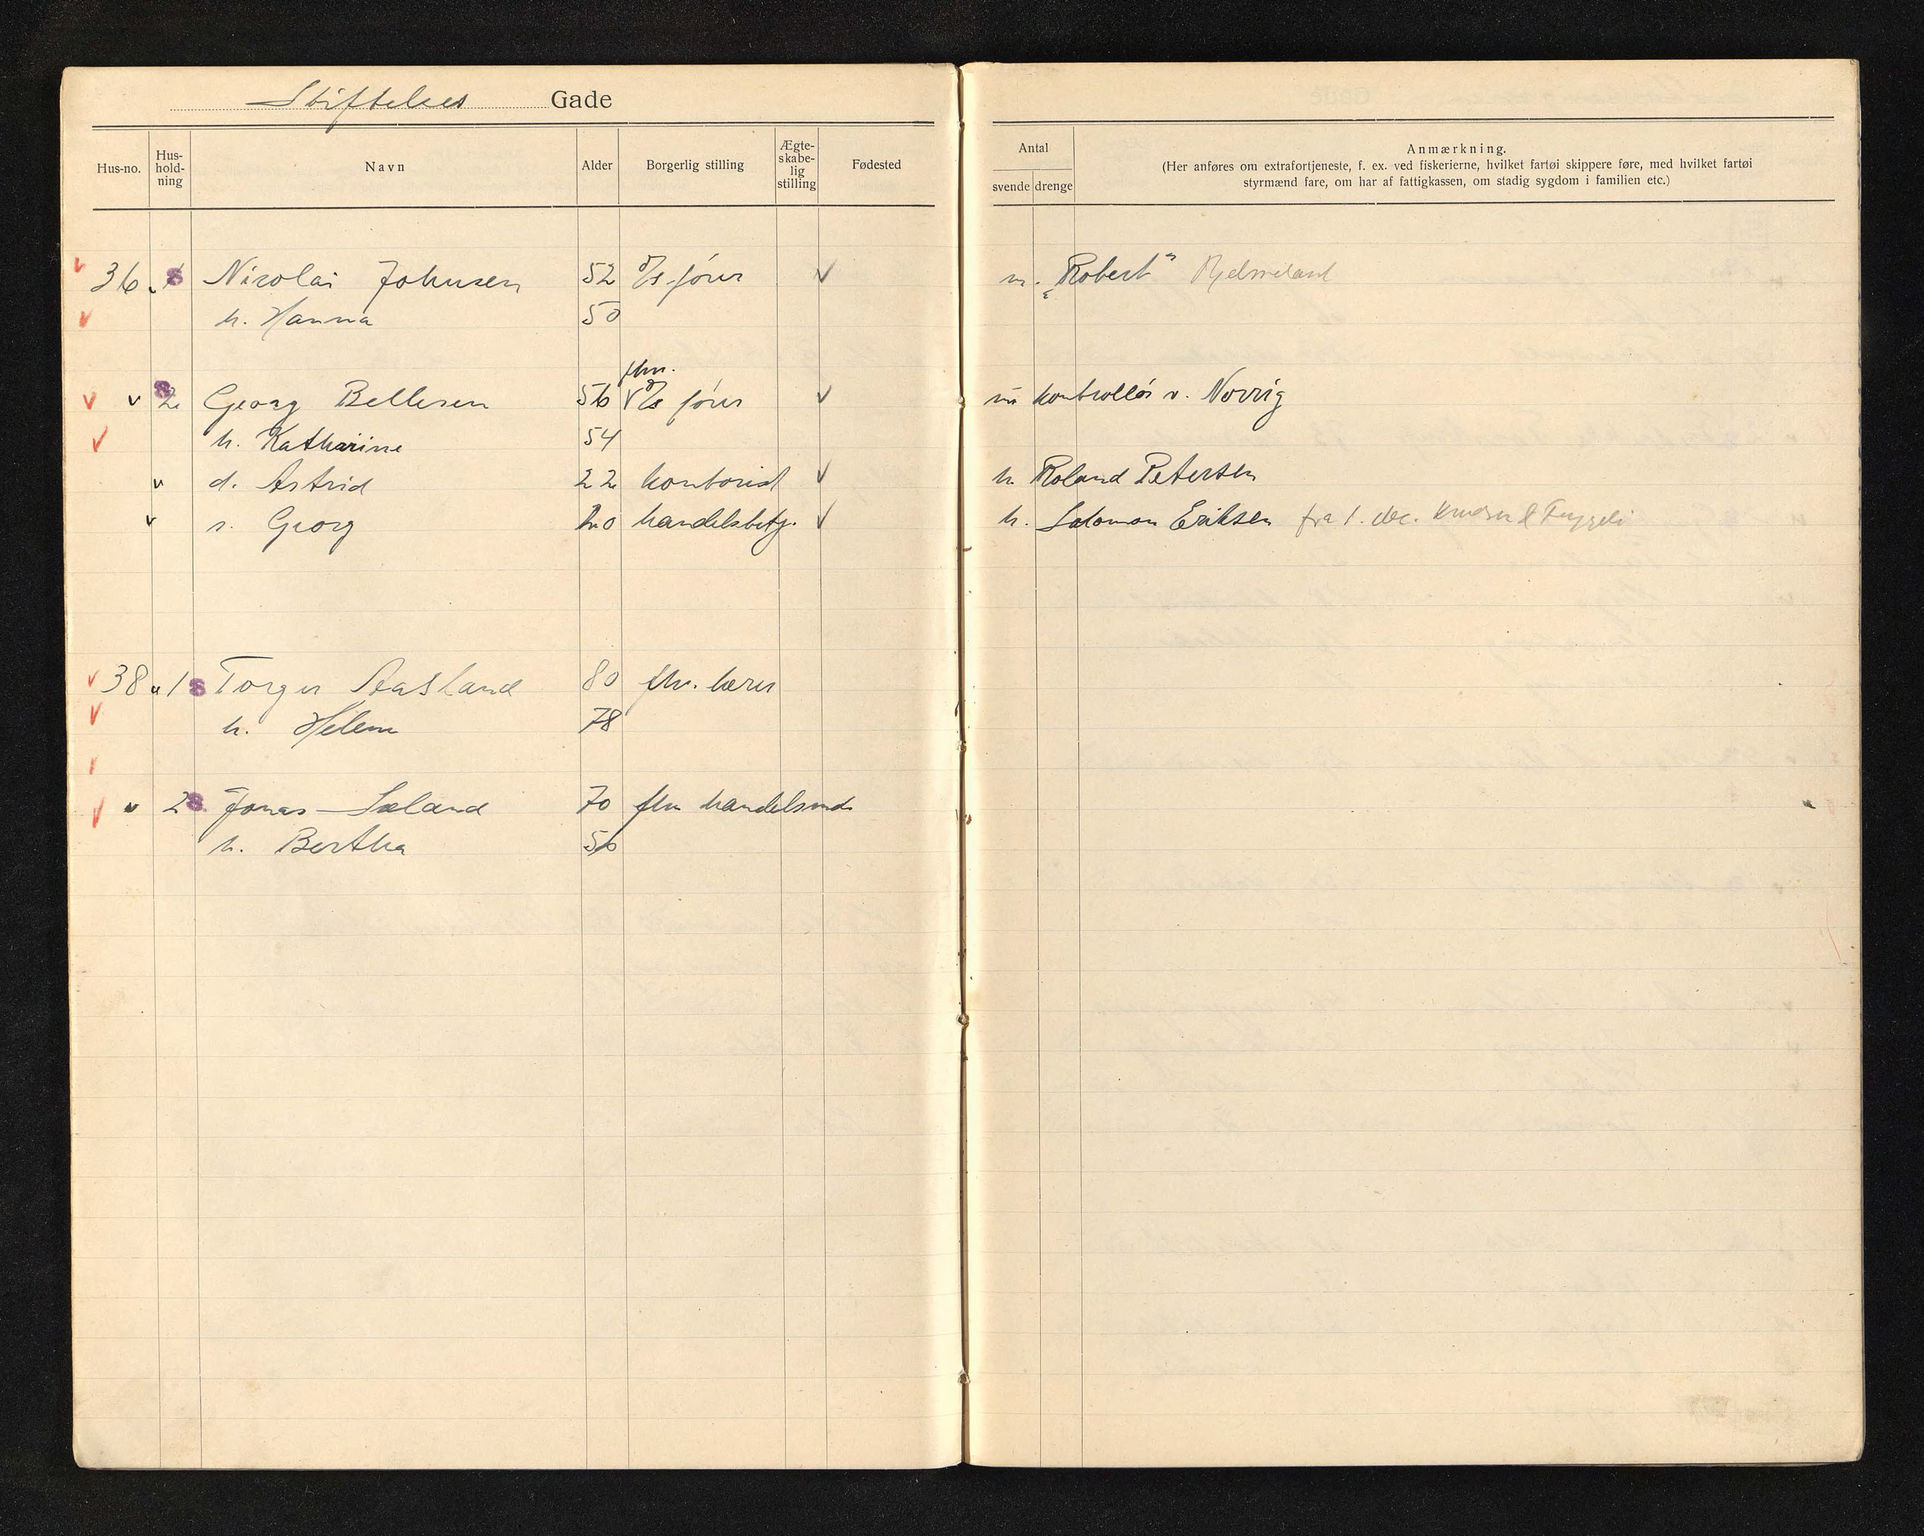 Stiftelses Gade
Hus-no. Hus-hold-ning Navn Alder Borgerlig stilling Ægte-skabe-lig stilling Fødested
Antal svende drenge
Anmærkning.
(Her anføres om extrafortjeneste, f. ex. ved fiskerierne, hvilket fartøi skippere føre, med hvilket fartøi
styrmænd fare, om har af fattigkassen, om stadig sygdom i familien etc.)
36 1 Nicolai Johnsen 52 D/s fører m. "Robert" Hjelmeland
h. Hanna 50
fhv.
2 Georg Bellesen 56 D/s fører nu kontrollør v. Norrig
h. Katharine 54
d. Astrid 22 kontorist h Roland Petersen
s. Georg 20 handelsbetj. h. Salomon Eriksen fra 1. dec.
38 1 Torger Aasland 80 fhv. lærer
h. Helene 78
2 Jonas Sæland 70 fhv handelsmd
h. Bertha 56